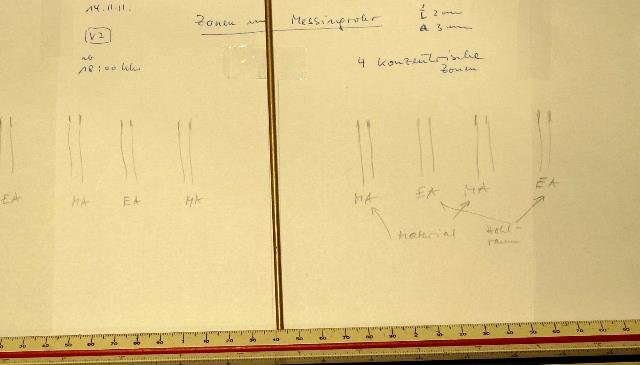 14.11.11.
Zonen im Messingrohr
I 2 mm
A 3 mm
V2
ab
18:00 Uhr
4 Konzentrische
Zonen
EA MA EA MA MA EA MA EA
Material
Hohl-
raum